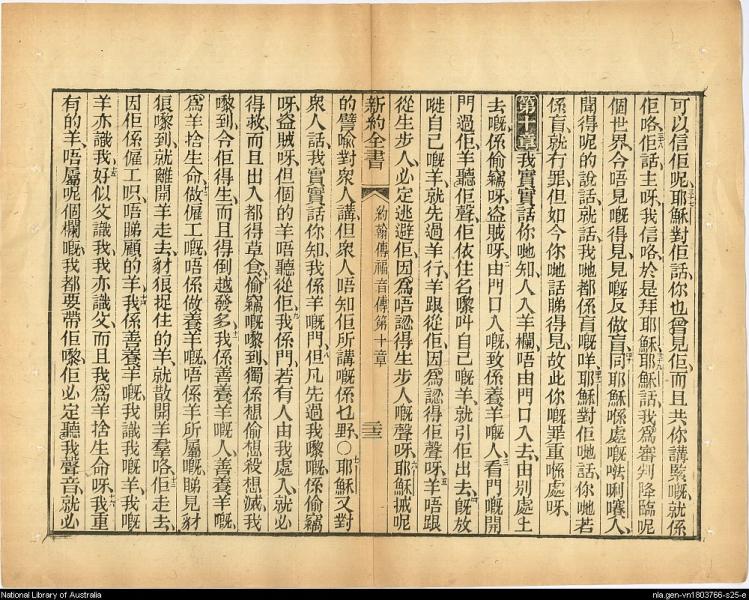 可以信佢呢、耶穌對佢話、你也曾見佢、而且共你講緊嘅、就係
佢咯、佢話、主呀、我信咯、於是拜耶穌、耶穌話、我為審判降臨呢
個世界、令唔見嘅得見、見嘅反做盲、同耶穌喺處嘅𠵽唎㘔人、
聞得呢的說話、就話、我哋都係盲嘅咩、耶穌對佢哋話、你哋若
係盲、就冇罪、但如今你哋話睇得見、故此你嘅罪重喺處呀、
第十章 我實實話你哋知、人入羊欄、唔由門口入去、由别處上
去嘅、係偷竊呀、盜賊呀、由門口入嘅、致係養羊嘅人、看門嘅開
門過佢、羊聽佢聲、佢依住名嚟叫自己嘅羊、就引佢出去、既放
嗮自己嘅羊、就先過羊行、羊跟從佢、因為認得佢聲呀、羊唔跟
從生步人、必定逃避佢、因為唔認得生步人嘅聲呀、耶穌掝呢
新約全書
約翰傳福音傳第十章
二十三
的譬喻對衆人講、但衆人唔知佢所講嘅係乜野、○耶穌又對
衆人話、我實實話你知、我係羊嘅門、但凡先過我嚟嘅、係偷竊
呀、盜賊呀、但個的羊唔聽從佢、我係門、若有人由我處入、就必
得救、而且出入都得草食、偷竊嘅嚟到、獨係想偷想殺想滅、我
嚟到、令佢得生、而且得倒越發多、我係善養羊嘅人、善養羊嘅、
為羊捨生命、做僱工嘅、唔係做養羊嘅、唔係羊所屬嘅、睇見豺
狼嚟到、就離開羊走去、豺狼捉住的羊、就散開羊羣咯、佢走去、
因佢係僱工呮、唔睇顧的羊、我係善養羊嘅、我識我嘅羊、我嘅
羊亦識我、好似父識我、我亦識父、而且我為羊捨生命呀、我重
有的羊、唔屬呢個欄嘅、我都要帶佢嚟、佢必定聽我聲音、就必
National Library of Australia
nla.gen-vn1803766-s25-e